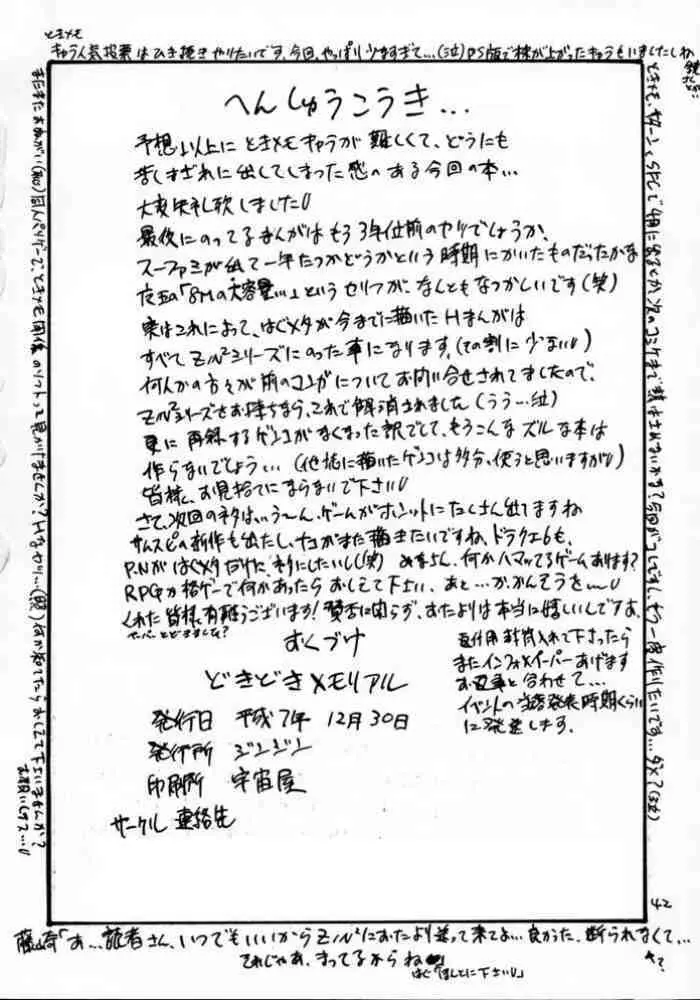 ときメモ
キャラ人気投票はひき続きやりたいです。今回、やっぱり少なすぎて…(泣)PS版で株が上がったキャラもいましたしね
へんしゅうこうき…
予想以上にときメモキャラが難しくて、どうにも
苦しまぎれに出してしまった感のある今回の本…
大変失礼致しました
最後にのってるまんがはもう3年位前のヤツでしょうか、
スーファミが出て一年たつかどうかという時期にかいたものだったかな
「8Mの大容量…」というセリフが、なんともなつかしいです(笑)
実はこれによって、はぐメタが今までに描いたHまんがは
すべてZ/N²シリーズにのった事になります。(その割に少ない)
何人かの方々が前のコミックについてお問い合せされてましたので、
Z/N²シリーズをお持ちなら、これで解消されました(うう…泣)
更に再録するゲンコがなくなった訳でして、もうこんなズルな本は
作らないでしょう…(他誌に描いたゲンコは多分、使うと思いますが)
皆様、お見捨てにならないで下さい
さて、次回のネタは…う〜ん、ゲームがホントにたくさん出てますね
サムスピの新作も出たし、ナコがまた描きたいですね、ドラクエ6も、
P.Nがはぐメタだけに、ネタにしたいし(笑) みなさん、何かハマッてるゲームあります?
RPGか格ゲーで何かあったらおしえて下さい、あと…か、かんそうを…
くれた皆様、有難うございます!賛否に関らず、おたよりは本当に嬉しいんですよ。
ペーパーとどきました?
おくづけ
どきどきメモリアル
発行日 平成7年 12月30日
発行所 ジンジン
印刷所 宇宙屋
サークル 連絡先
返信用封筒入れて下さったら
またインフォメイパーあげます
お返事と合わせて…
イベントの当落発表時期くらい
に発送します。
ときメモ、サターンとSFCで4月に出るとか、次のコミケまで続けられないかな?今回がコレですし、もう一度作りたいです…ダメ?(泣)
まだまだおねがい 同人ペリゲーで、ときメモ関係のソフトって見かけませんか?Hなヤツ… 何か知ってたらおしえて下さいませんか?
お願いしマス…
42
藤崎「あ…読者さん、いつでもいいからZ/N²におたより送って来てよ…良かった、断られなくて…
それじゃあ、まってるからね」
はぐ「ほんとに下さい」